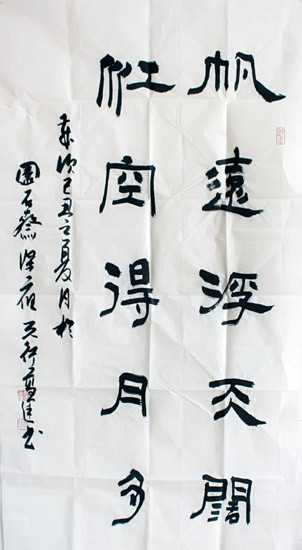 帆遠浮天闊
江空得月多
歲次己丑之夏月於
園石齋
書